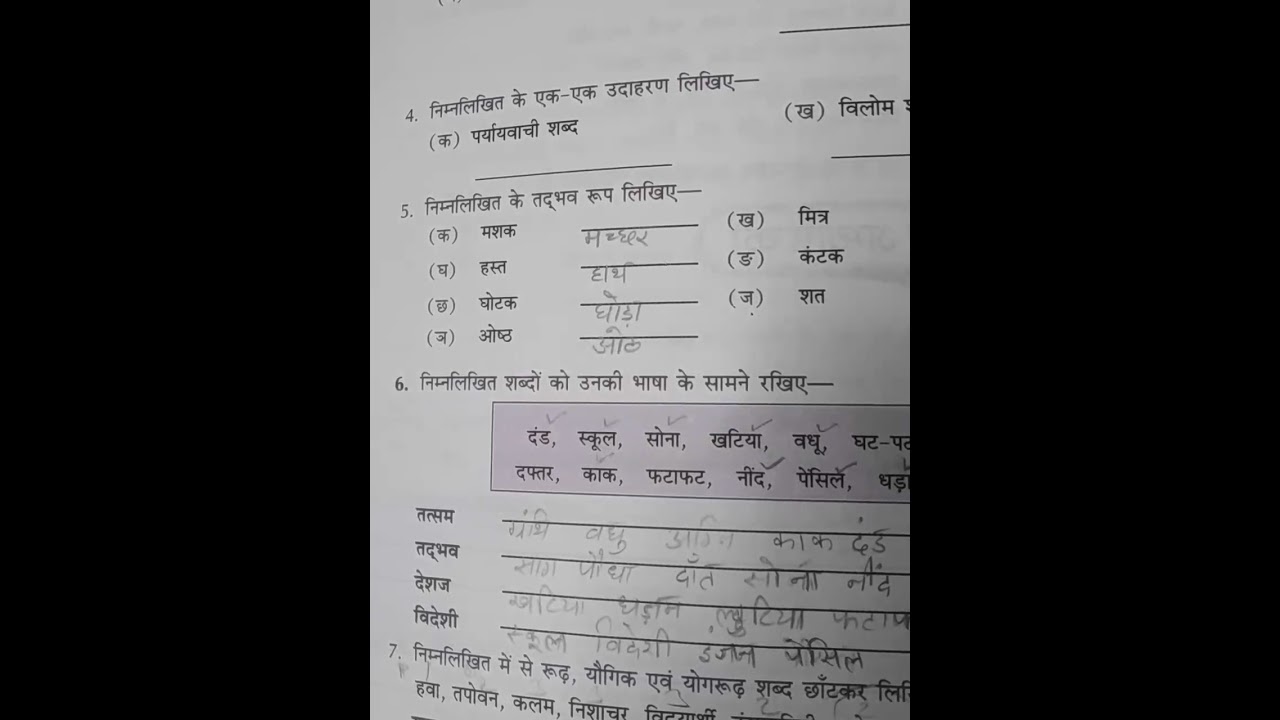 4. निम्नलिखित के एक-एक उदाहरण लिखिए—
(क) पर्यायवाची शब्द (ख) विलोम
5. निम्नलिखित के तद्भव रूप लिखिए—
(क) मशक मच्छर (ख) मित्र
(घ) हस्त हाथ (ङ) कंटक
(छ) घोटक घोड़ा (ज) शत
(ञ) ओष्ठ ओठ
6. निम्नलिखित शब्दों को उनकी भाषा के सामने रखिए—
दंड, स्कूल, सोना, खटिया, वधू, घट-पट
दफ्तर, काक, फटाफट, नींद, पेंसिल, धड़ा
तत्सम ग्रंथि वधु अग्नि काक दंड
तद्भव साग पौधा दाँत सोना नींद
देशज खटिया लुटिया फटाफ
विदेशी स्कूल विदेशी इंजन पेंसिल
7. निम्नलिखित में से रूढ़, यौगिक एवं योगरूढ़ शब्द छाँटकर
हवा, तपोवन, कलम, निशाचर, विद्यार्थी